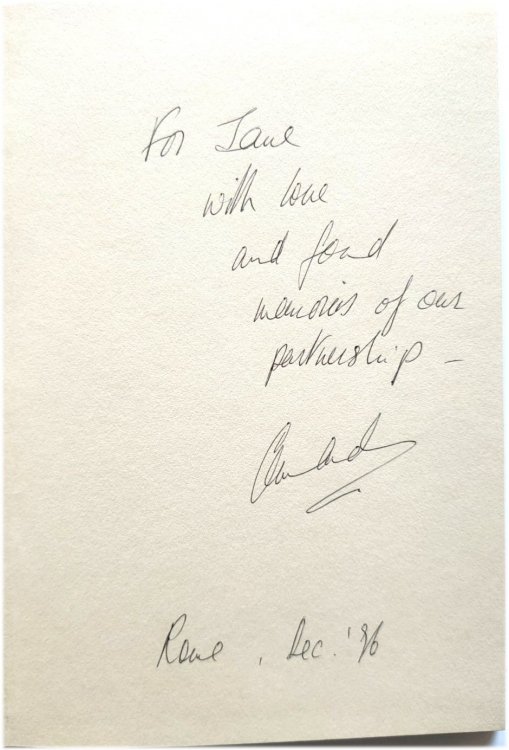 For Jane
with love
and fond
memories of our
partnership –
Rome, Dec. '96